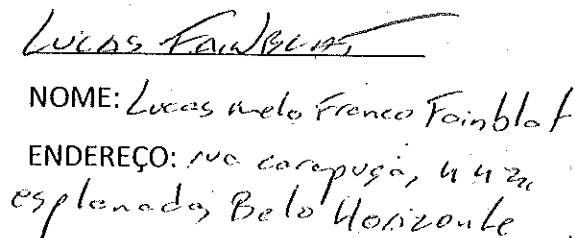 Lucas Fainblat
NOME: Lucas melo Franco Fainblat
ENDEREÇO: carapuça,
esplanada, Belo Horizonte